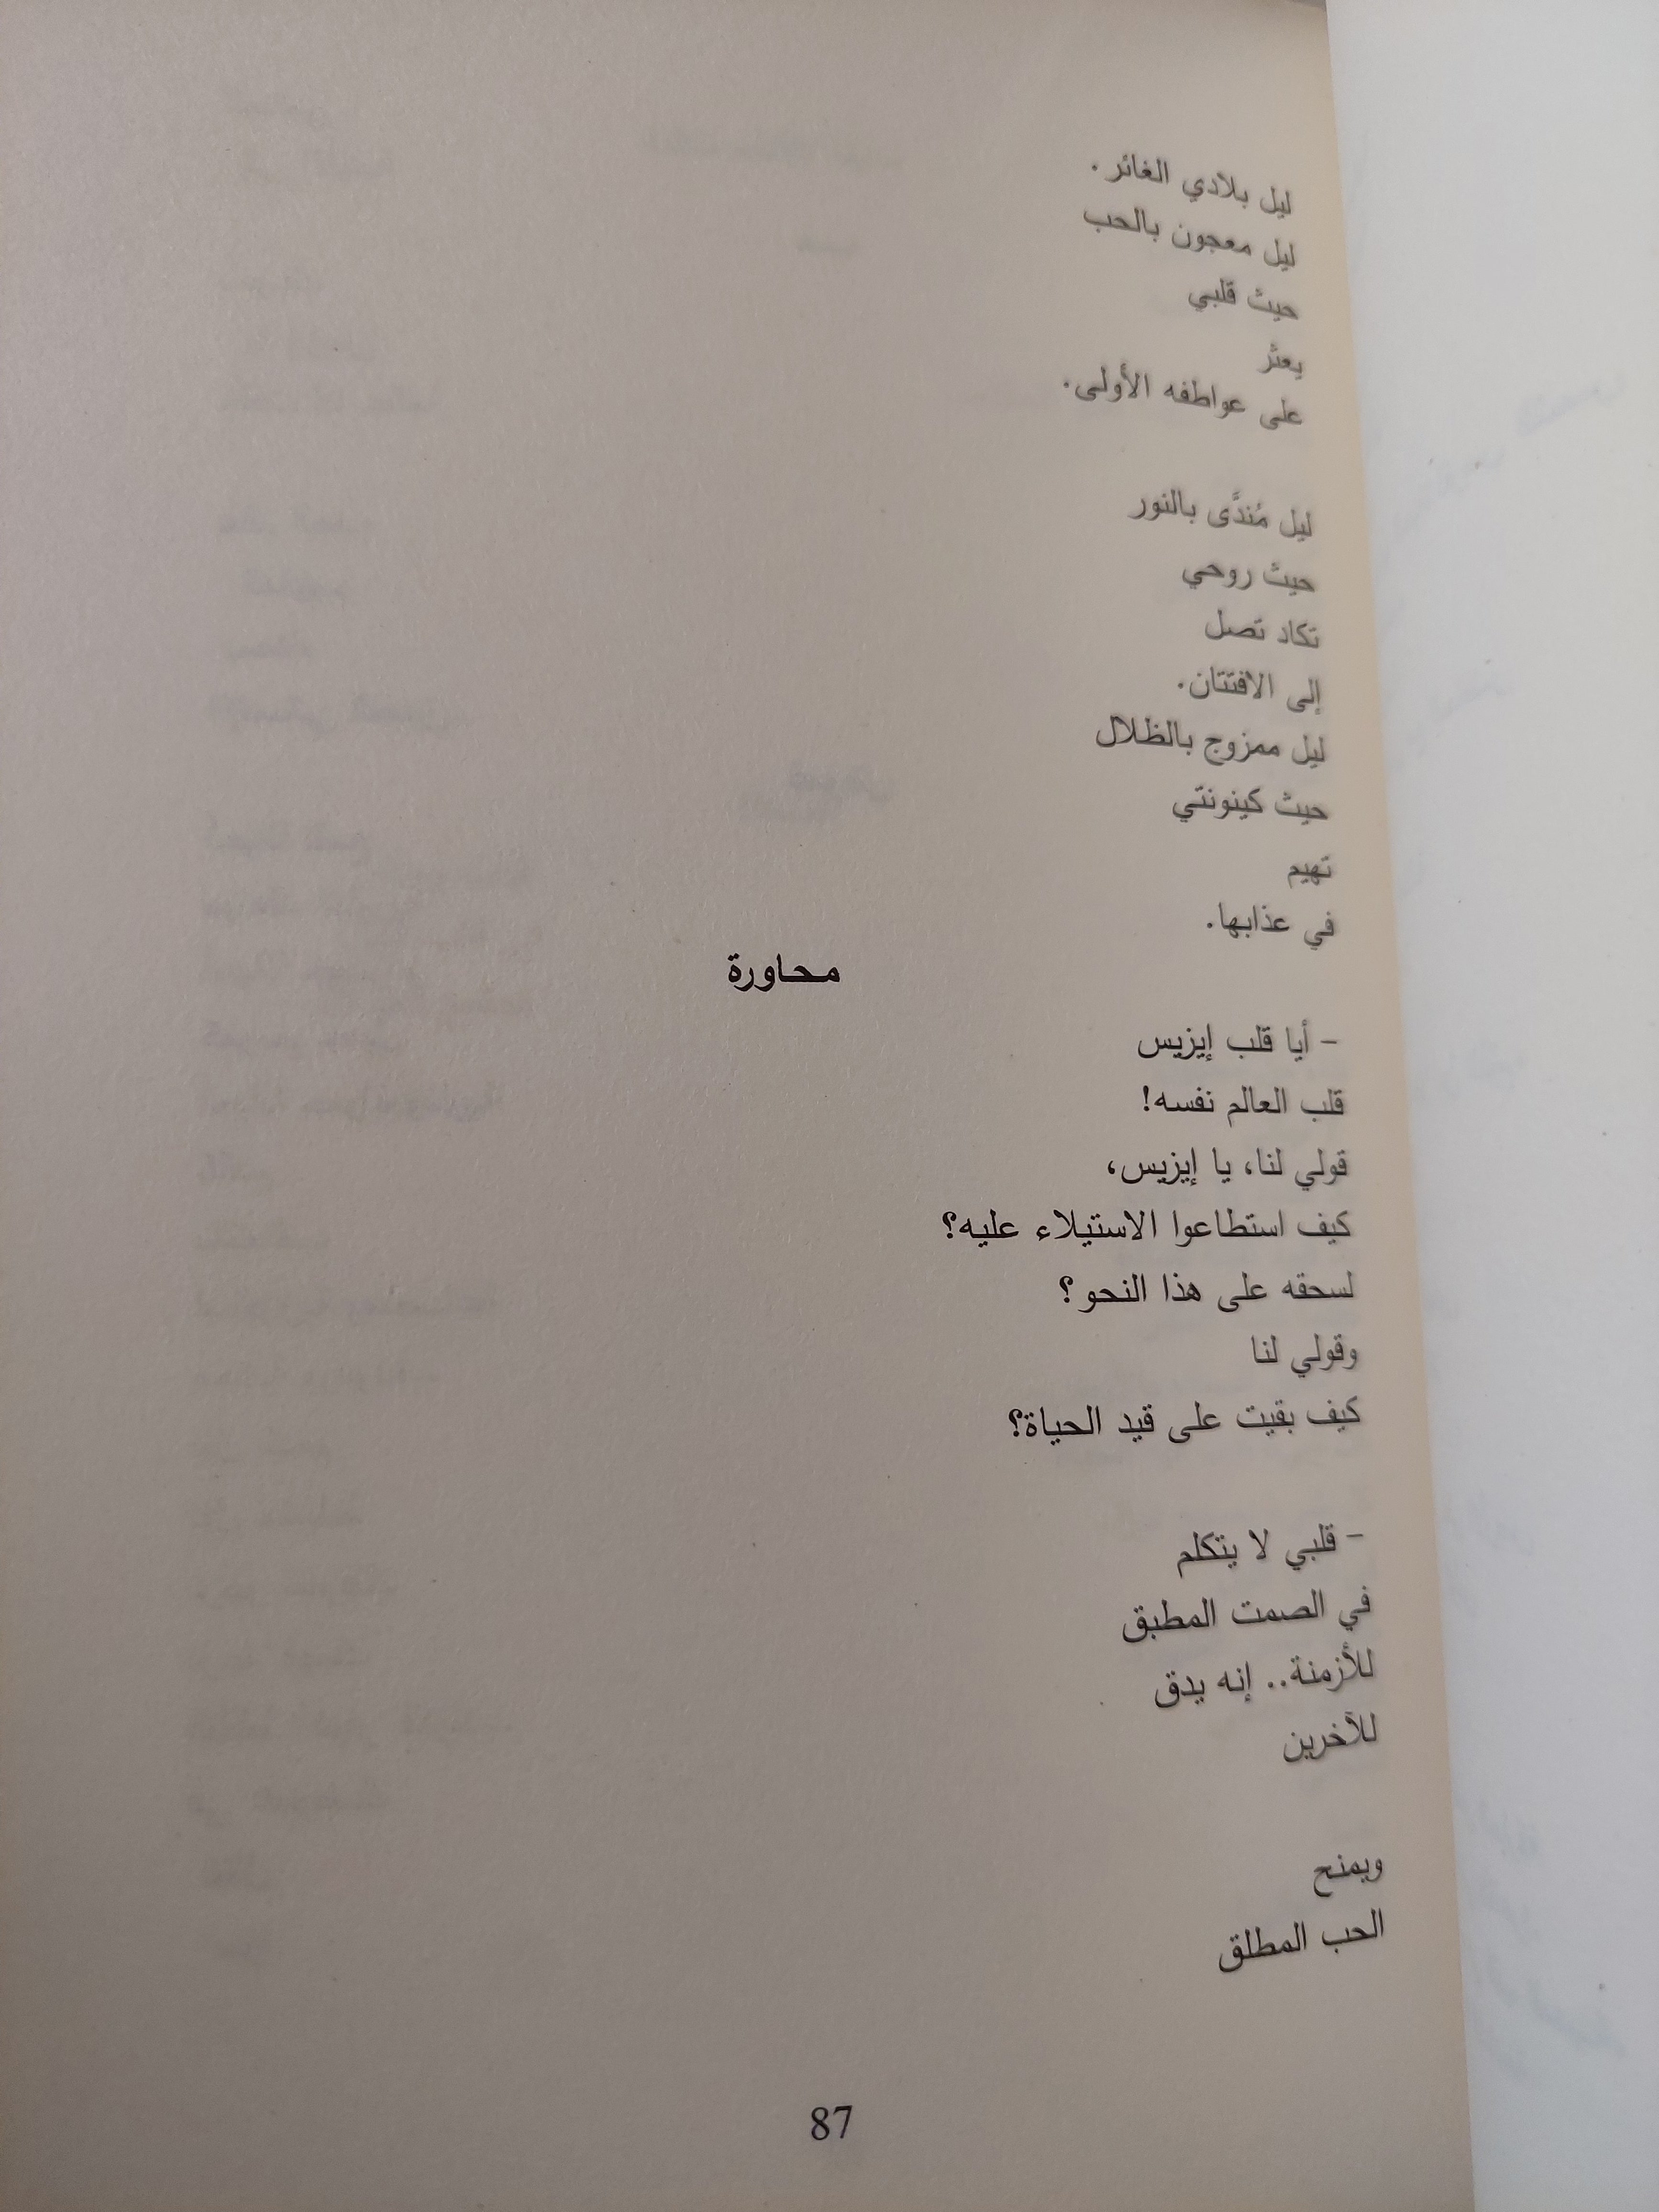 ليل بلادي الغائر.
ليل معجون بالحب
حيث قلبي
يعثر
على عواطفه الأولى.
ليل مُندَّى بالنور
حيث روحي
تكاد تصل
إلى الافتتان.
ليل ممزوج بالظلال
حيث كينونتي
تهيم
في عذابها.
محاورة
- أيا قلب إيزيس
قلب العالم نفسه!
قولي لنا، يا إيزيس،
كيف استطاعوا الاستيلاء عليه؟
لسحقه على هذا النحو؟
وقولي لنا
كيف بقيت على قيد الحياة؟
- قلبي لا يتكلم
في الصمت المطبق
للأزمنة.. إنه يدق
للآخرين
ويمنح
الحب المطلق
87